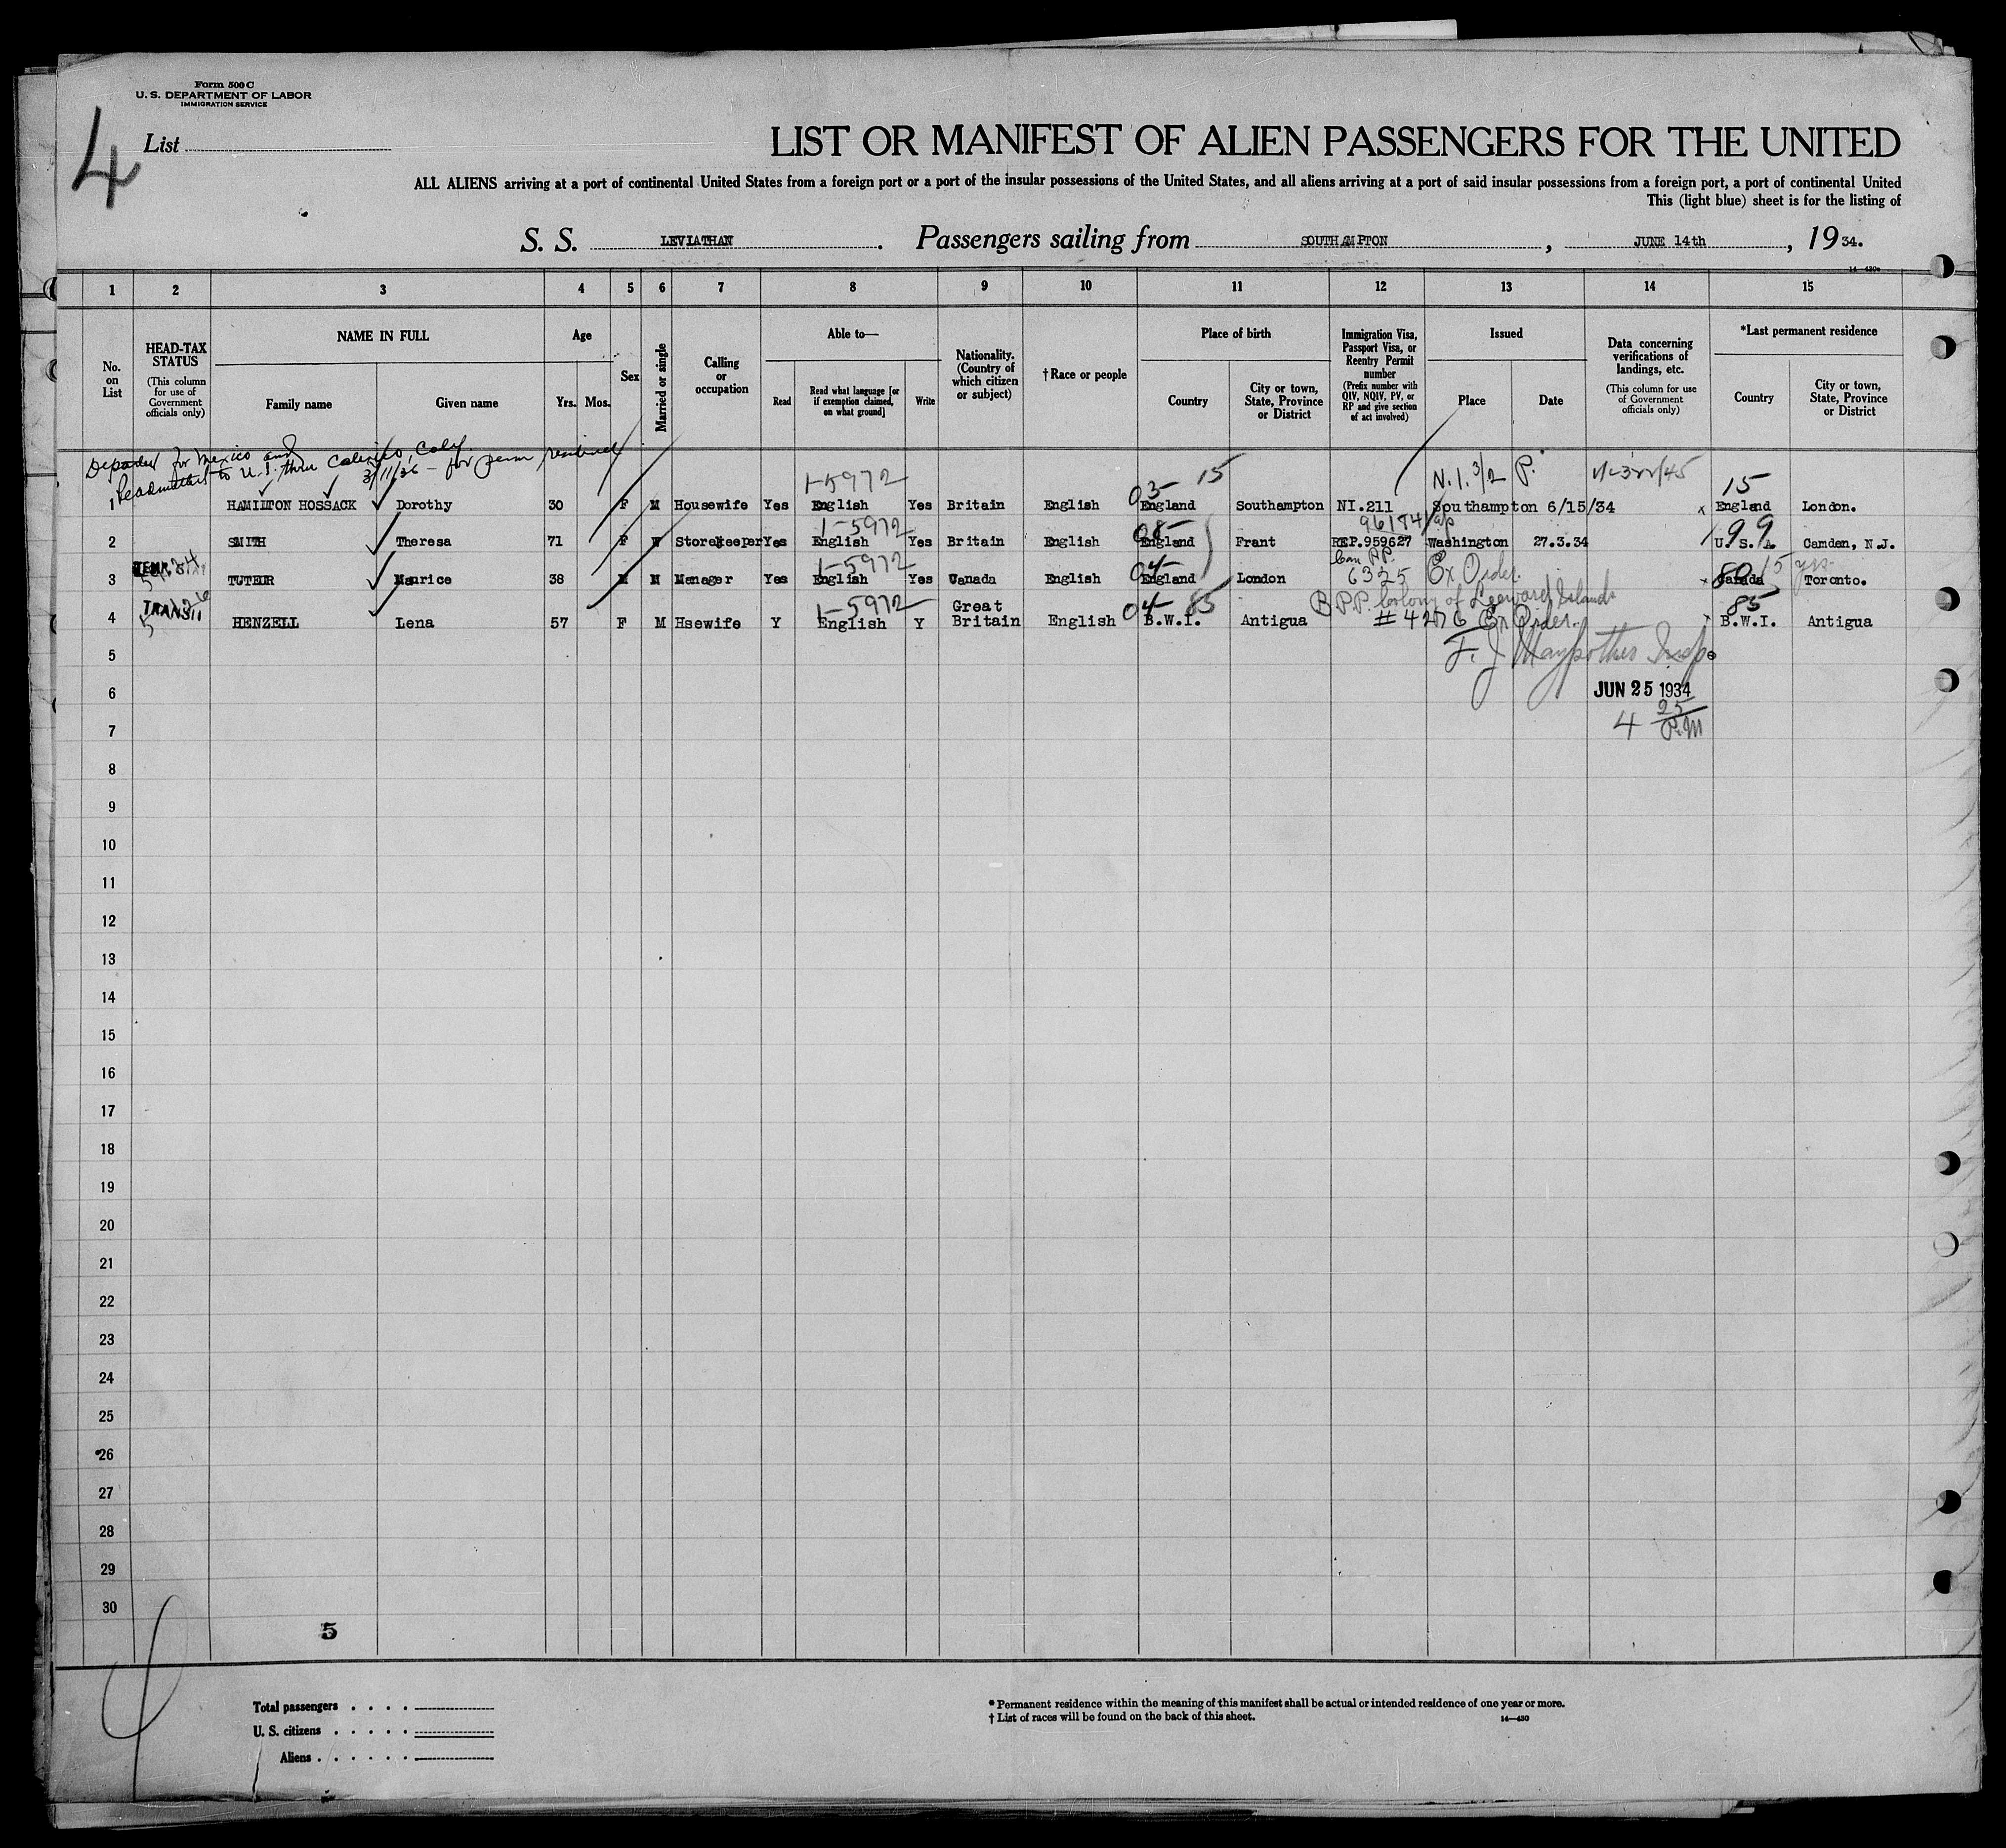 Form 500 C
U. S. DEPARTMENT OF LABOR
IMMIGRATION SERVICE
4
List
LIST OR MANIFEST OF ALIEN PASSENGERS FOR THE UNITED
ALL ALIENS arriving at a port of continental United States from a foreign port or a port of the insular possessions of the United States, and all aliens arriving at a port of said insular possessions from a foreign port, a port of continental United
This (light blue) sheet is for the listing of
S. S. LEVIATHAN. Passengers sailing from SOUTHAMPTON, JUNE 14th, 1934.
1 2 3 4 5 6 7 8 9 10 11 12 13 14 15
No. on List
HEAD-TAX STATUS (This column for use of Government officials only)
NAME IN FULL Family name Given name
Age Yrs. Mos.
Sex
Married or single
Calling or occupation
Able to— Read Read what language [or if exemption claimed, on what ground] Write
Nationality. (Country of which citizen or subject)
†Race or people
Place of birth Country City or town, State, Province or District
Immigration Visa, Passport Visa, or Reentry Permit number (Prefix number with QIV, NQIV, PV, or RP and give section of act involved)
Issued Place Date
Data concerning verifications of landings, etc. (This column for use of Government officials only)
*Last permanent residence Country City or town, State, Province or District
Departed for Mexico and
Readmitted to U.S. thru Calexico, Calif
3/11/36 - for perm residence
1-5972 03 15 N.I. 3/2 P. 15
1 HAMILTON HOSSACK Dorothy 30 F M Housewife Yes English Yes Britain English England Southampton NI.211 Southampton 6/15/34 x England London.
1-5972 99
2 SMITH Theresa 71 F W Storekeeper Yes English Yes Britain English England Frant REP.959627 Washington 27.3.34 U.S.A. Camden, N.J.
TEMP. 1-5972 04 Can P.P. 6325 Ex Order. 80 15 yrs
3 TUTEUR Maurice 38 M M Manager Yes English Yes Canada English England London Canada Toronto.
TRANSIT 1-5972 04 85 B.P.P. Colony of Leeward Islands 85
4 HENZELL Lena 57 F M Hsewife Y English Y Great Britain English B.W.I. Antigua #4276 Ex Order. B.W.I. Antigua
5
6 JUN 25 1934
7 4 25 P.M
8
9
10
11
12
13
14
15
16
17
18
19
20
21
22
23
24
25
26
27
28
29
30
5
Total passengers . . . .
U. S. citizens . . . . .
Aliens . . . . . .
* Permanent residence within the meaning of this manifest shall be actual or intended residence of one year or more.
† List of races will be found on the back of this sheet.
14—430